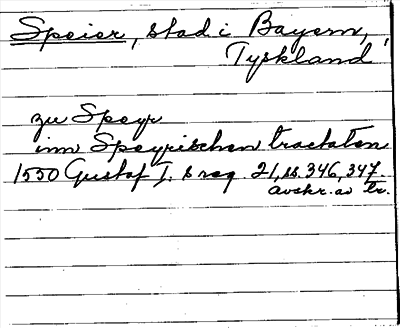 Speier, stad i Bayern,
Tyskland
zu Speyr
inn Speyrischen tractaten
1550 Gustaf I. s reg. 21, ss. 346, 347.
avskr. av tr.